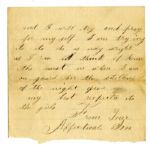 and I will try and pray
for my self I am trying
to do as is my right as
I am I think of Him
the most is when I am
on guard for the stillness
of the night give
my best respects to
the girls
from Your
Affectionate Son